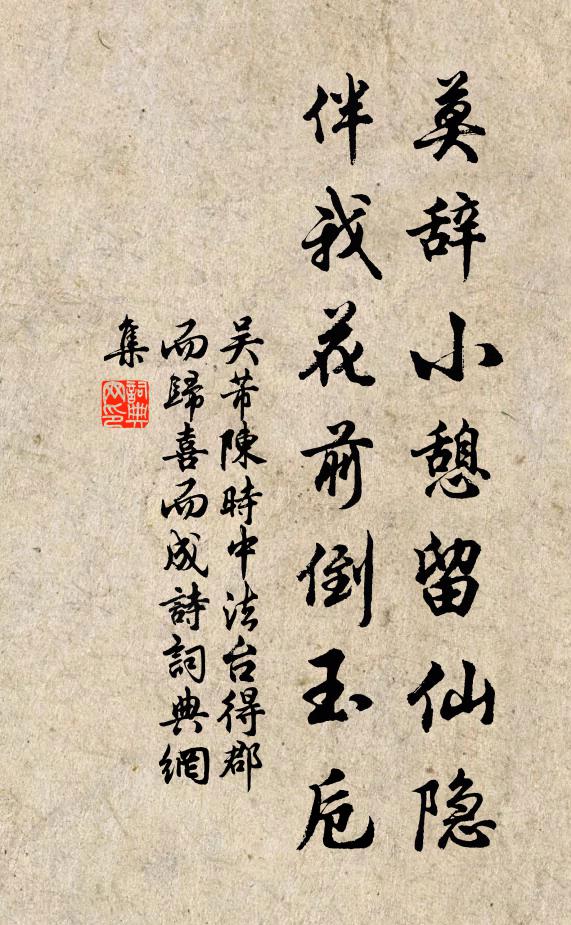 莫辞小憩留仙隐
伴我花前倒玉卮
吴芾陳時中法台得郡
而歸喜而成詩詞典網
集
詞典網印